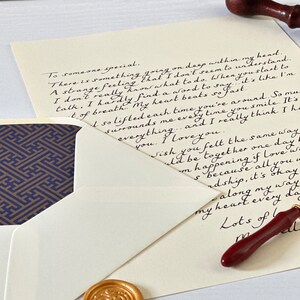 To someone special,
There is something going on deep within my heart,
A strange feeling that I don't seem to understand
I don't really know what to do. When you start to
talk, I hardly find a word to say. It's like I'm
of breath. My heart beats so fast.
so lifted each time you're around. So mu
surrounds me every time you smile. It's
everything, and I really think I h
you. I love you.
wish you felt the same way
ld be together one day
m happening if love w
so because all you
dship, it's okay
along my way
my heart every da
Lots of l